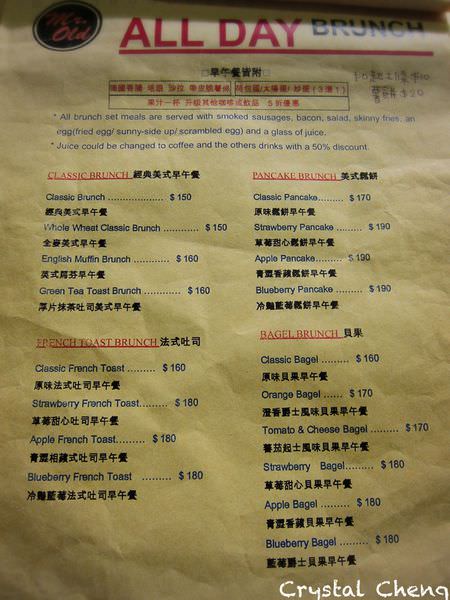 Mr. Old
ALL DAY BRUNCH
早午餐皆附
德國香腸 培根 沙拉 帶皮脆薯條 荷包蛋/太陽蛋/炒蛋(3選1)
果汁一杯 升級其他咖啡或飲品 5折優惠
加起士條$10
薯餅$20
* All brunch set meals are served with smoked sausages, bacon, salad, skinny fries, an
egg(fried egg/ sunny-side up/ scrambled egg) and a glass of juice.
* Juice could be changed to coffee and the others drinks with a 50% discount.
CLASSIC BRUNCH 經典美式早午餐
Classic Brunch .................... $ 150
經典美式早午餐
Whole Wheat Classic Brunch ............ $ 150
全麥美式早午餐
English Muffin Brunch ............ $ 160
英式馬芬早午餐
Green Tea Toast Brunch ............ $ 160
厚片抹茶吐司美式早午餐
FRENCH TOAST BRUNCH 法式吐司
Classic French Toast ......... $ 160
原味法式吐司早午餐
Strawberry French Toast........... $ 180
草莓甜心吐司早午餐
Apple French Toast......... $ 180
青澀相蘋式吐司早午餐
Blueberry French Toast ......... $ 180
冷豔藍莓法式吐司早午餐
PANCAKE BRUNCH 美式鬆餅
Classic Pancake......... $ 170
原味鬆餅早午餐
Strawberry Pancake ......... $ 190
草莓甜心鬆餅早午餐
Apple Pancake......... $ 190
青澀香蘋鬆餅早午餐
Blueberry Pancake ......... $ 190
冷豔藍莓鬆餅早午餐
BAGEL BRUNCH 貝果
Classic Bagel ......... $ 160
原味貝果早午餐
Orange Bagel ...... $ 170
澄香爵士風味貝果早午餐
Tomato & Cheese Bagel ......... $ 170
蕃茄起士風味貝果早午餐
Strawberry Bagel......... $ 180
草莓甜心貝果早午餐
Apple Bagel ............ $ 180
青澀香蘋貝果早午餐
Blueberry Bagel ......... $ 180
藍莓爵士貝果早午餐
Crystal Cheng